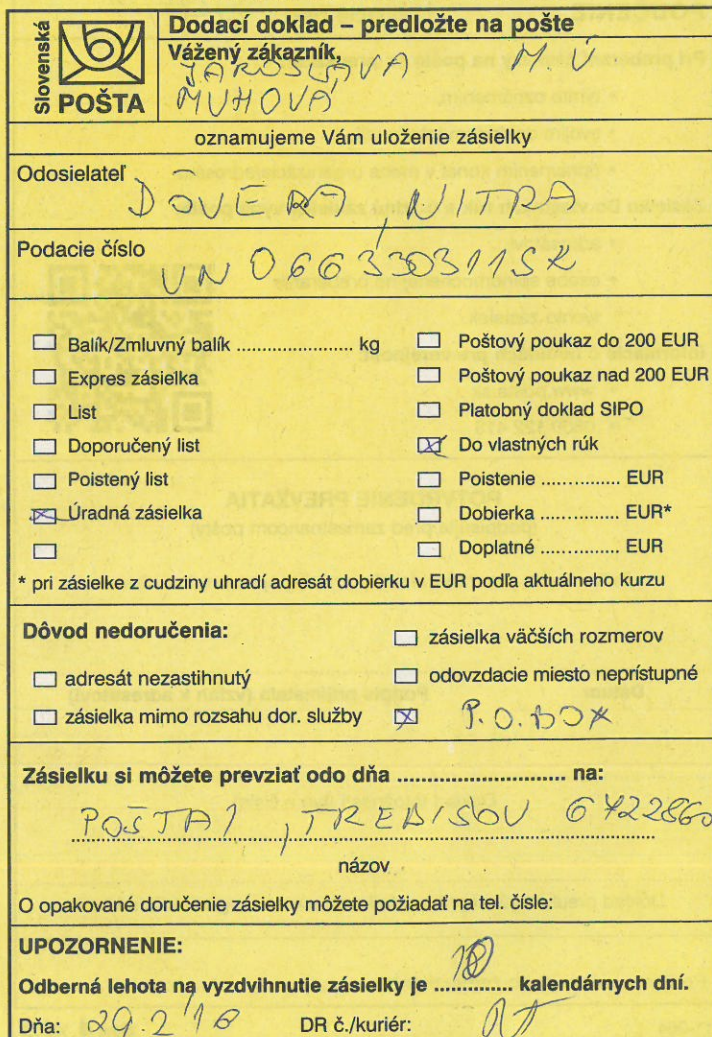 Slovenská POŠTA
Dodací doklad – predložte na pošte
Vážený zákazník,
JAROSLAVA M.Ú
MUHOVÁ
oznamujeme Vám uloženie zásielky
Odosielateľ
DOVERA, NITRA
Podacie číslo
UN 066330311SK
Balík/Zmluvný balík ...................... kg
Expres zásielka
List
Doporučený list
Poistený list
Úradná zásielka
Poštový poukaz do 200 EUR
Poštový poukaz nad 200 EUR
Platobný doklad SIPO
Do vlastných rúk
Poistenie .............. EUR
Dobierka .............. EUR*
Doplatné .............. EUR
* pri zásielke z cudziny uhradí adresát dobierku v EUR podľa aktuálneho kurzu
Dôvod nedoručenia:
zásielka väčších rozmerov
adresát nezastihnutý
odovzdacie miesto neprístupné
zásielka mimo rozsahu dor. služby
P.O.BOX
Zásielku si môžete prevziať odo dňa ........................... na:
POŠTA 1, TREBIŠOV 6722860
názov
O opakované doručenie zásielky môžete požiadať na tel. čísle:
UPOZORNENIE:
Odberná lehota na vyzdvihnutie zásielky je ............. kalendárnych dní.
Dňa: 29.2 16 DR č./kuriér: